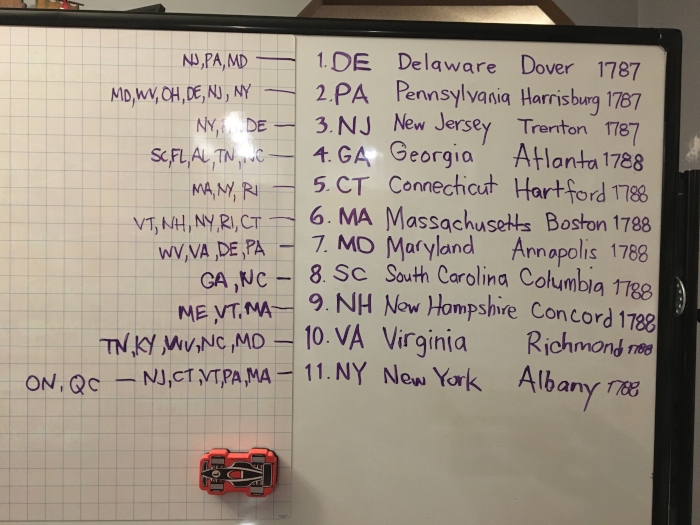 NJ,PA,MD — 1. DE Delaware Dover 1787
MD,WV,OH,DE,NJ,NY — 2. PA Pennsylvania Harrisburg 1787
NY, DE — 3. NJ New Jersey Trenton 1787
SC,FL,AL,TN,NC — 4. GA Georgia Atlanta 1788
MA,NY,RI — 5. CT Connecticut Hartford 1788
VT,NH,NY,RI,CT — 6. MA Massachusetts Boston 1788
WV,VA,DE,PA — 7. MD Maryland Annapolis 1788
GA,NC — 8. SC South Carolina Columbia 1788
ME,VT,MA — 9. NH New Hampshire Concord 1788
TN,KY,WV,NC,MD — 10. VA Virginia Richmond 1788
ON, QC — NJ,CT,VT,PA,MA — 11. NY New York Albany 1788